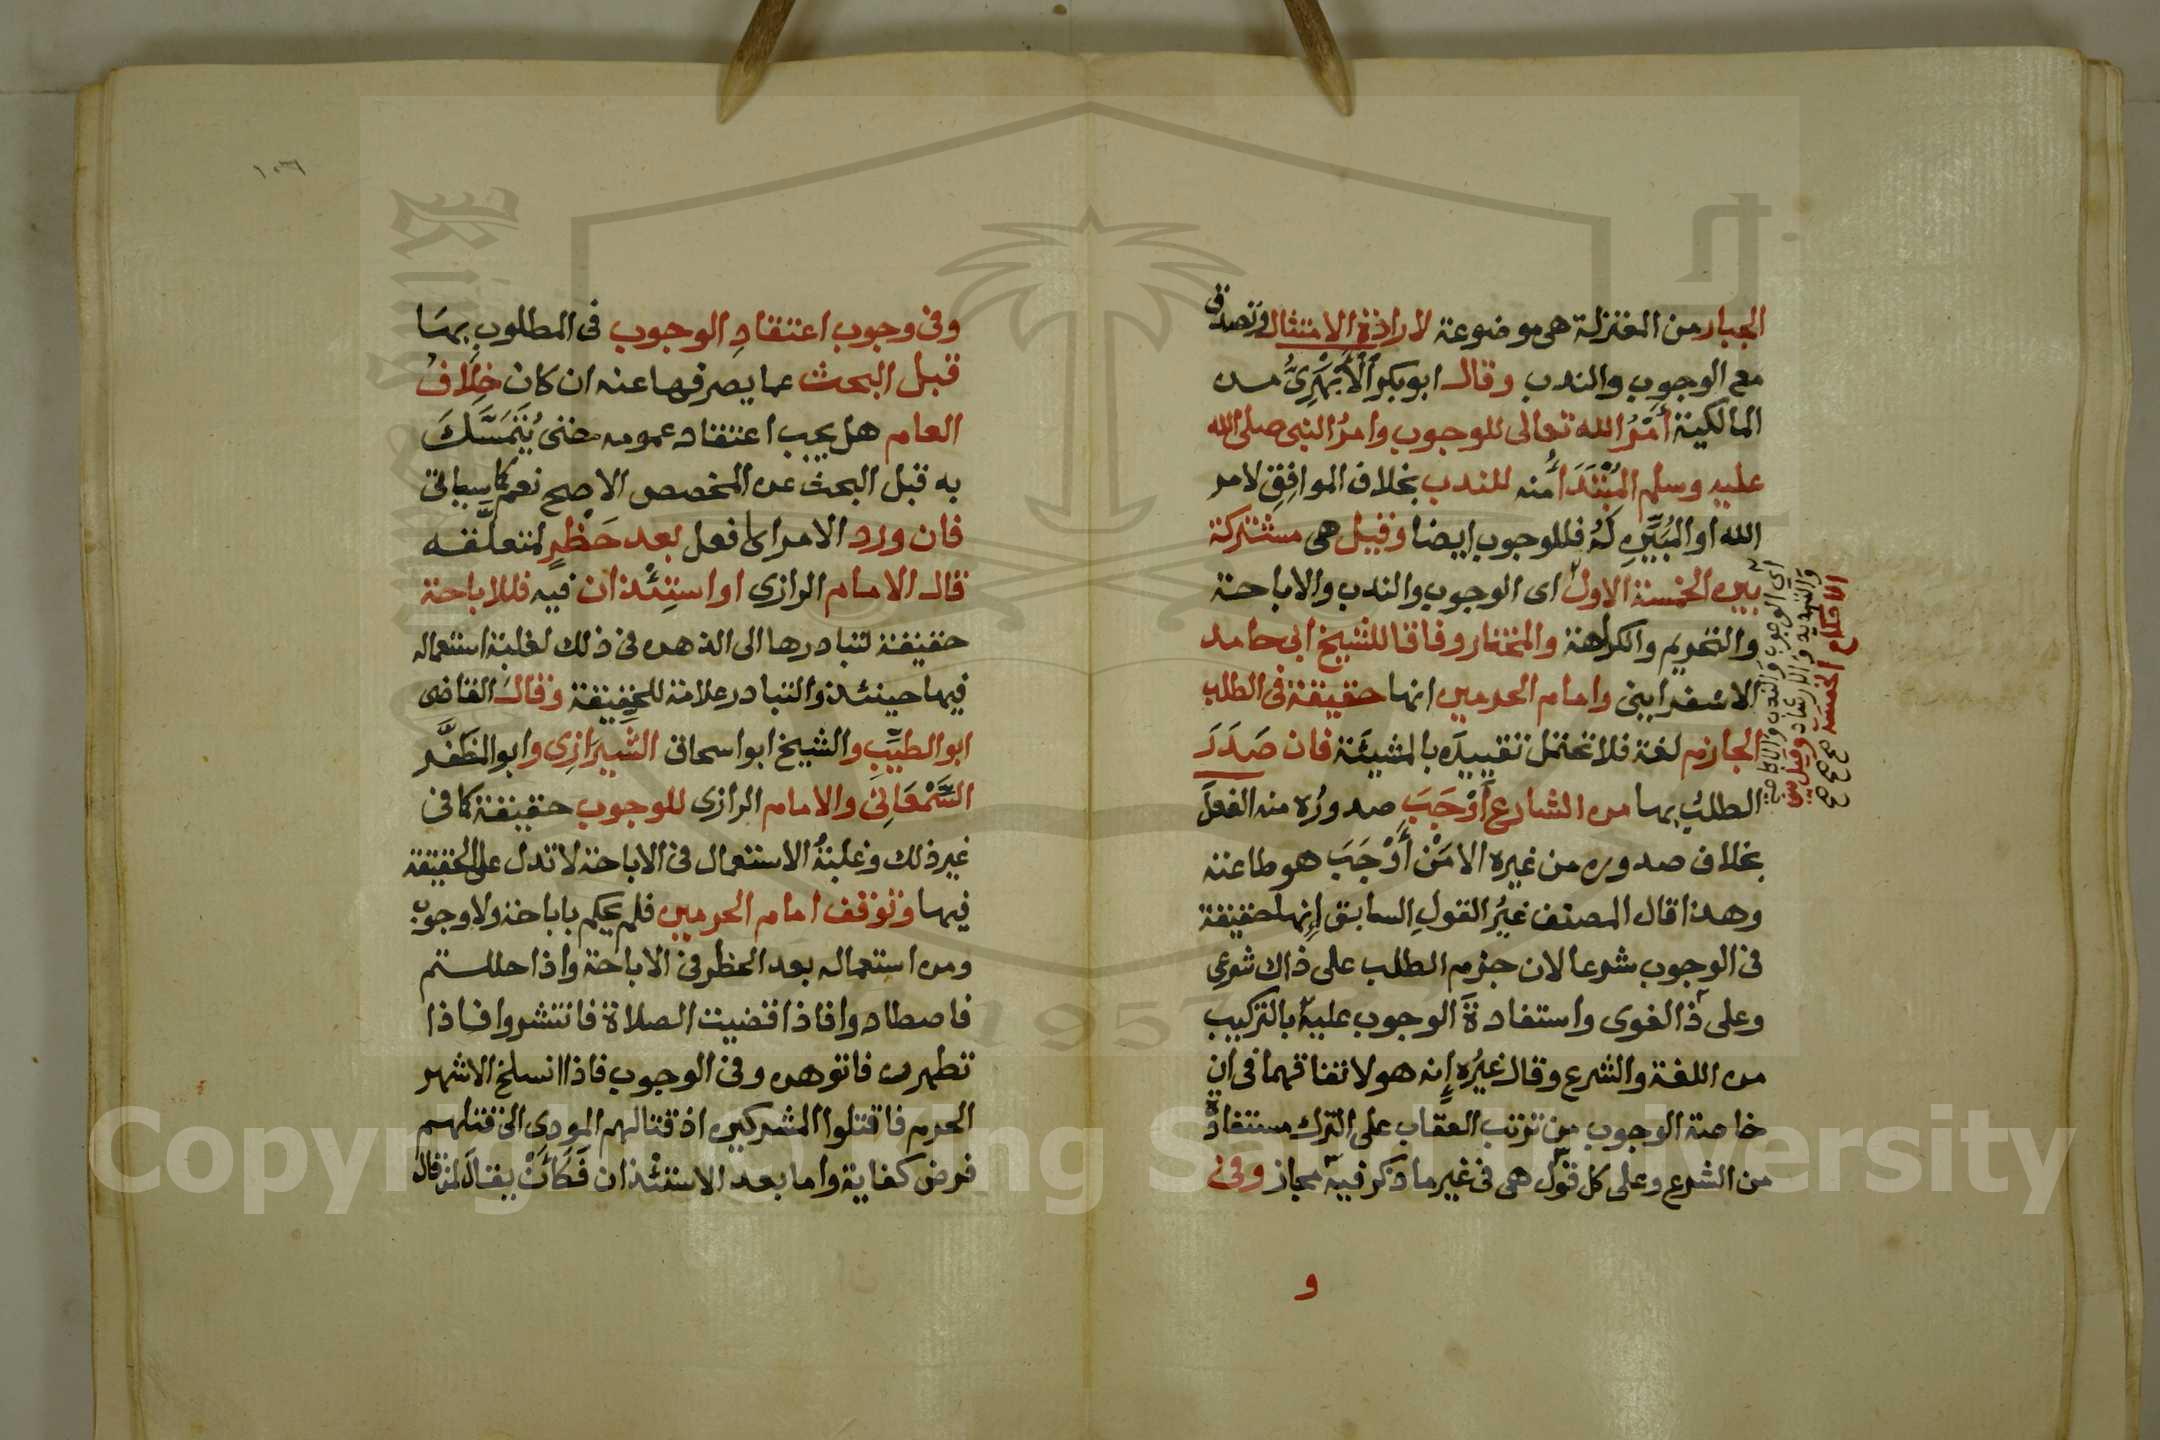 الجبار من المعتزلة هي موضوعة لارادة الامتثال وتصدق
مع الوجوب والندب وقال ابو بكر الْأَبْهَرِىُّ من
المالكية أَمْرُ الله تعالى للوجوب وامرُ النبى صلى الله
عليه وسلم المُبْتَدَأُ منه للندب بخلاف الموافِقِ لامر
الله او المُبَيِّنِ لَهُ فللوجوب ايضا وقيل هى مشتركة
بين الخمسة الاول اى الوجوب والندب والاباحة
والتحريم والكراهة والمختار وفاقا للشيخ ابى حامد
الاسفراينى وامام الحرمين انها حقيقة فى الطلب
الجازم لغة فلا تحتمل تقييدَه بالمشيئة فان صَدَرَ
الطلبُ بها من الشارع أَوْجَبَ صدورُه منه الفعلَ
بخلاف صدوره من غيره الا مَنْ أَوْجَبَ هو طاعته
وهذا قال المصنف غيرُ القولِ السابق إنها حقيقة
فى الوجوب شرعا لان جزم الطلب على ذاك شرعى
وعلى ذا لغوى واستفادةَ الوجوب عليه بالتركيب
من اللغة والشرع وقال غيرُه إنه هو لاتفاقهما فى ان
خاصة الوجوب من ترتب العقاب على الترك مستفادة
من الشرع وعلى كل قول هى فى غير ما ذكر فيه مجاز وفى
و
اى الوجوب والندب والاباحة
والتهديد والارشاد وقيل بين
الاحكام الخمسة صح صح صح
١٠٣٦
وفى وجوب اعتقادِ الوجوب فى المطلوب بها
قبل البحث عما يصرفها عنه ان كان خِلَافُ
العام هل يجب اعتقاد عمومه حتى يُتَمَسَّكَ
به قبل البحث عن المخصص الاصح نعم كما سياتى
فان ورد الامر اى افعل بعد حَظْرٍ لمتعلَّقه
قال الامام الرازى او استِئْذان فيه فللاباحة
حقيقة لتبادرها الى الذهن فى ذلك لغلبة استعماله
فيها حينئذ والتبادر علامة للحقيقة وقال القاضى
ابو الطيِّبِ والشيخ ابو اسحاق الشِّيرَازِى وابو المظَفَّر
السَّمْعَانِى والامام الرازى للوجوب حقيقة كما فى
غير ذلك وغلبةُ الاستعمال فى الاباحة لا تدل على الحقيقة
فيها وتوقف امام الحرمين فلم يحكم باباحة ولا وجوب
ومن استعماله بعد الحظر فى الاباحة واذا حللتم
فاصطادوا فاذا قضيت الصلاة فانتشروا فاذا
تطهرن فاتوهن وفى الوجوب فاذا انسلخ الاشهر
الحرم فاقتلوا المشركين اذ قتالهم المودى الى قتلهم
فرض كفاية واما بعد الاستئذان فَكَأَنْ يقالَ لمن قال
Copyright © King Saud University
1957